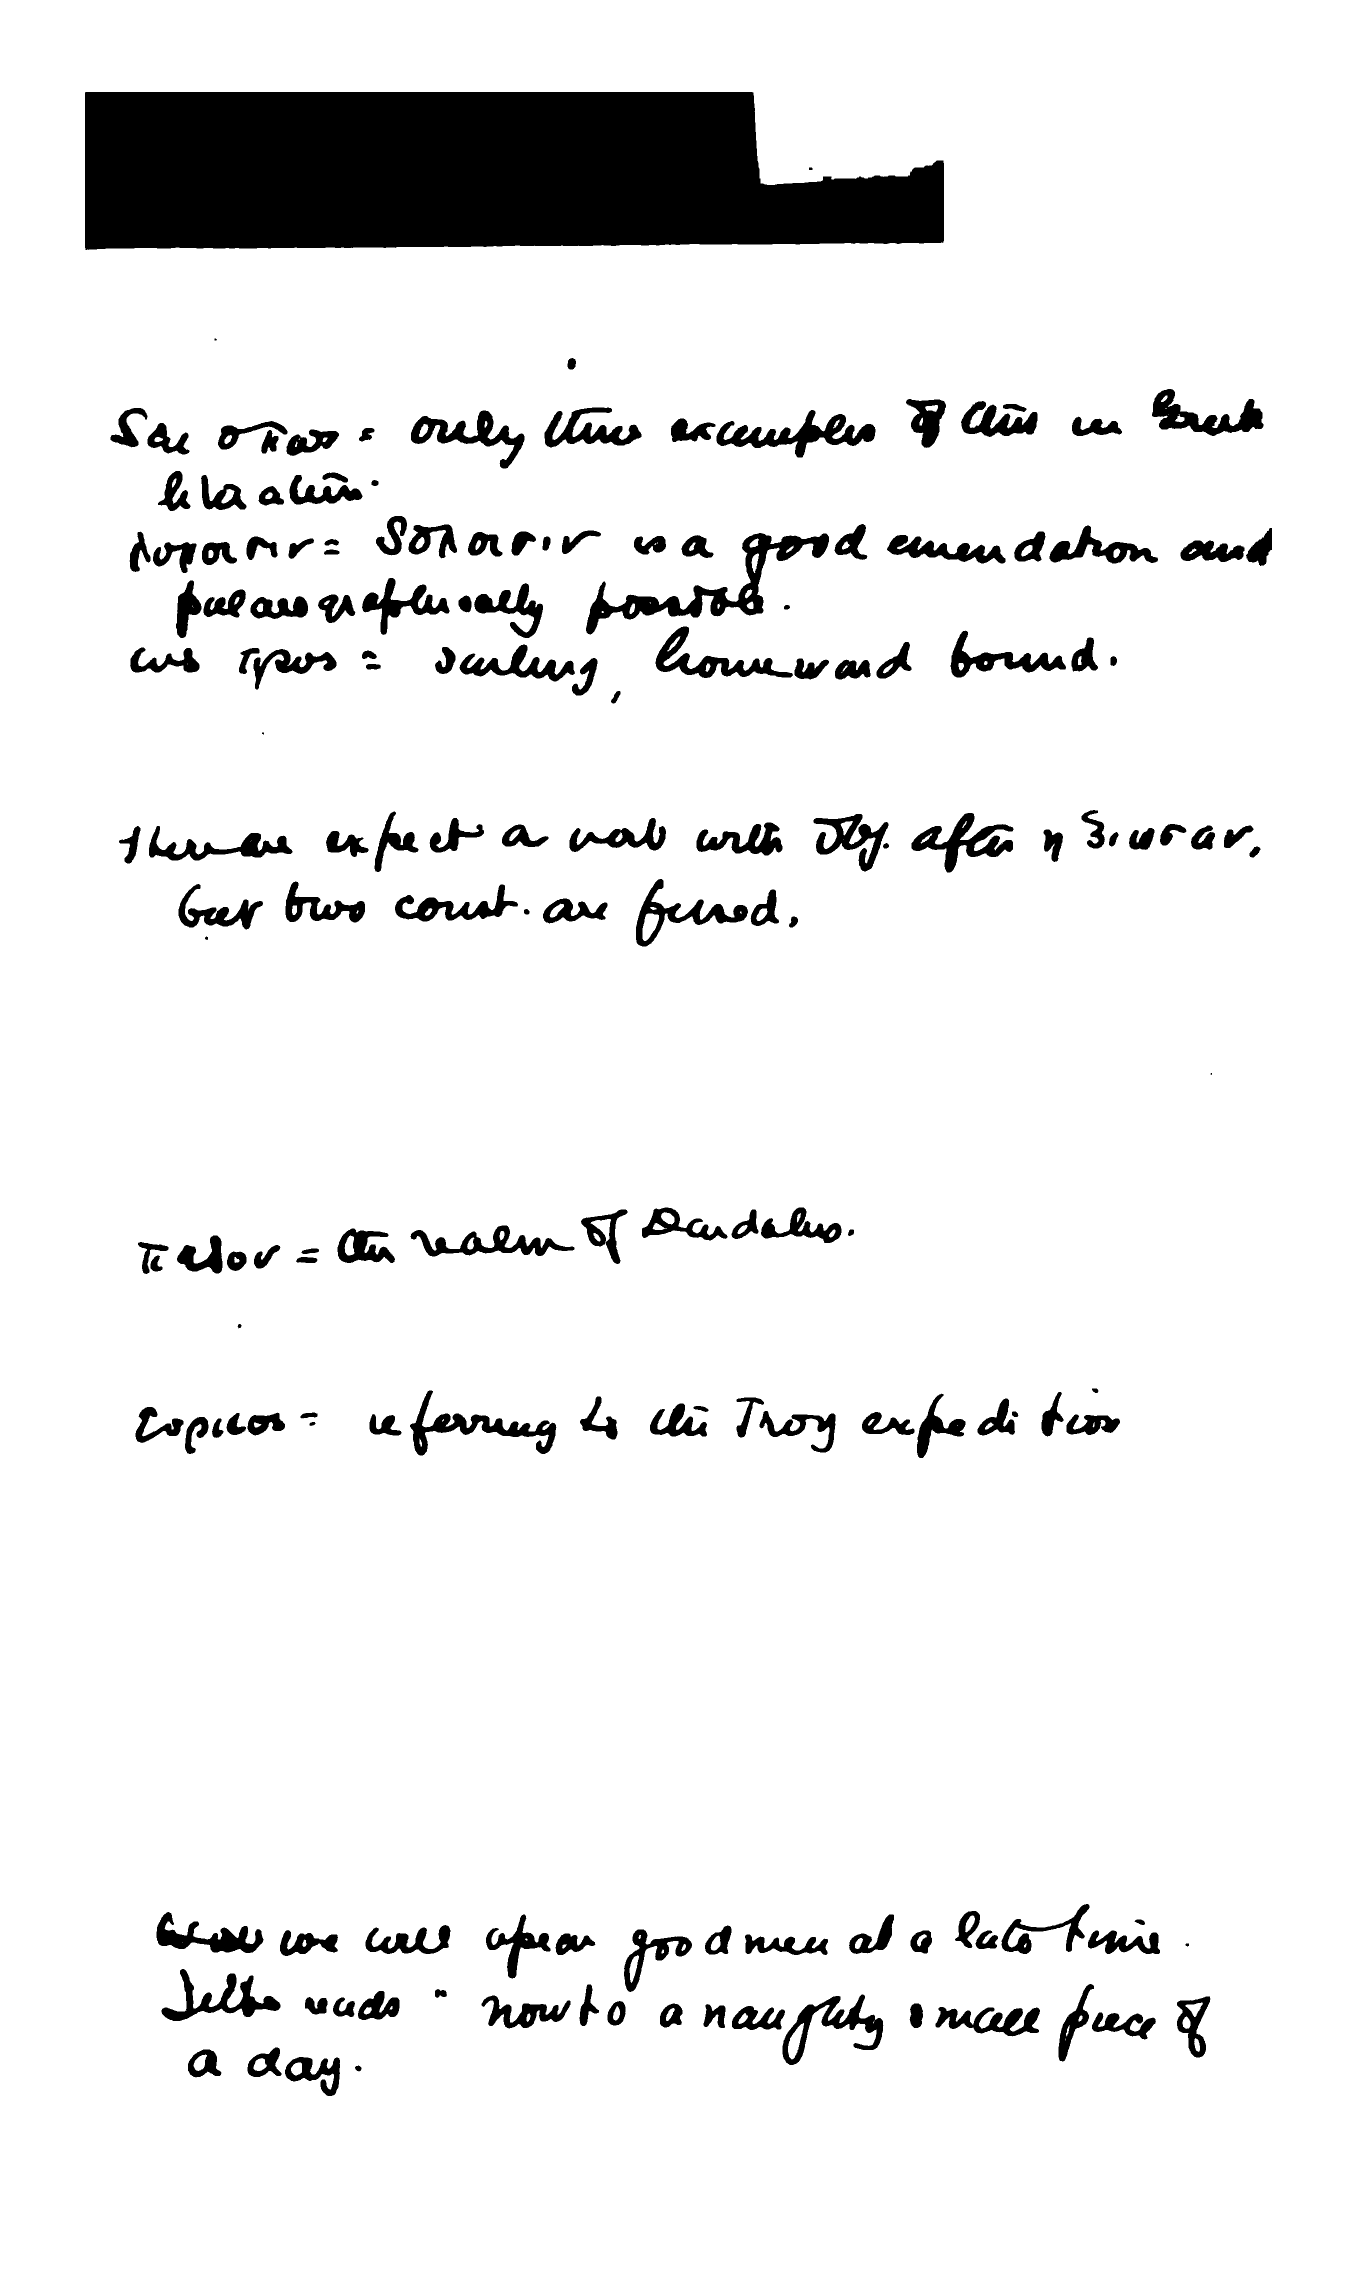 δαι οπως = only three examples of this in Greek
literature.
λογοισιν = δολοισιν is a good emendation and
palaeographically possible.
προς = sailing, homeward bound.
There we expect a verb with obj. after ηξιωσαν,
but two const. are fused.
πεδον = the realm of Daedalus.
στρατος = referring to the Troy expedition
we call upon good men at a late time.
Jebb reads " now to a naughty small piece of
a day.